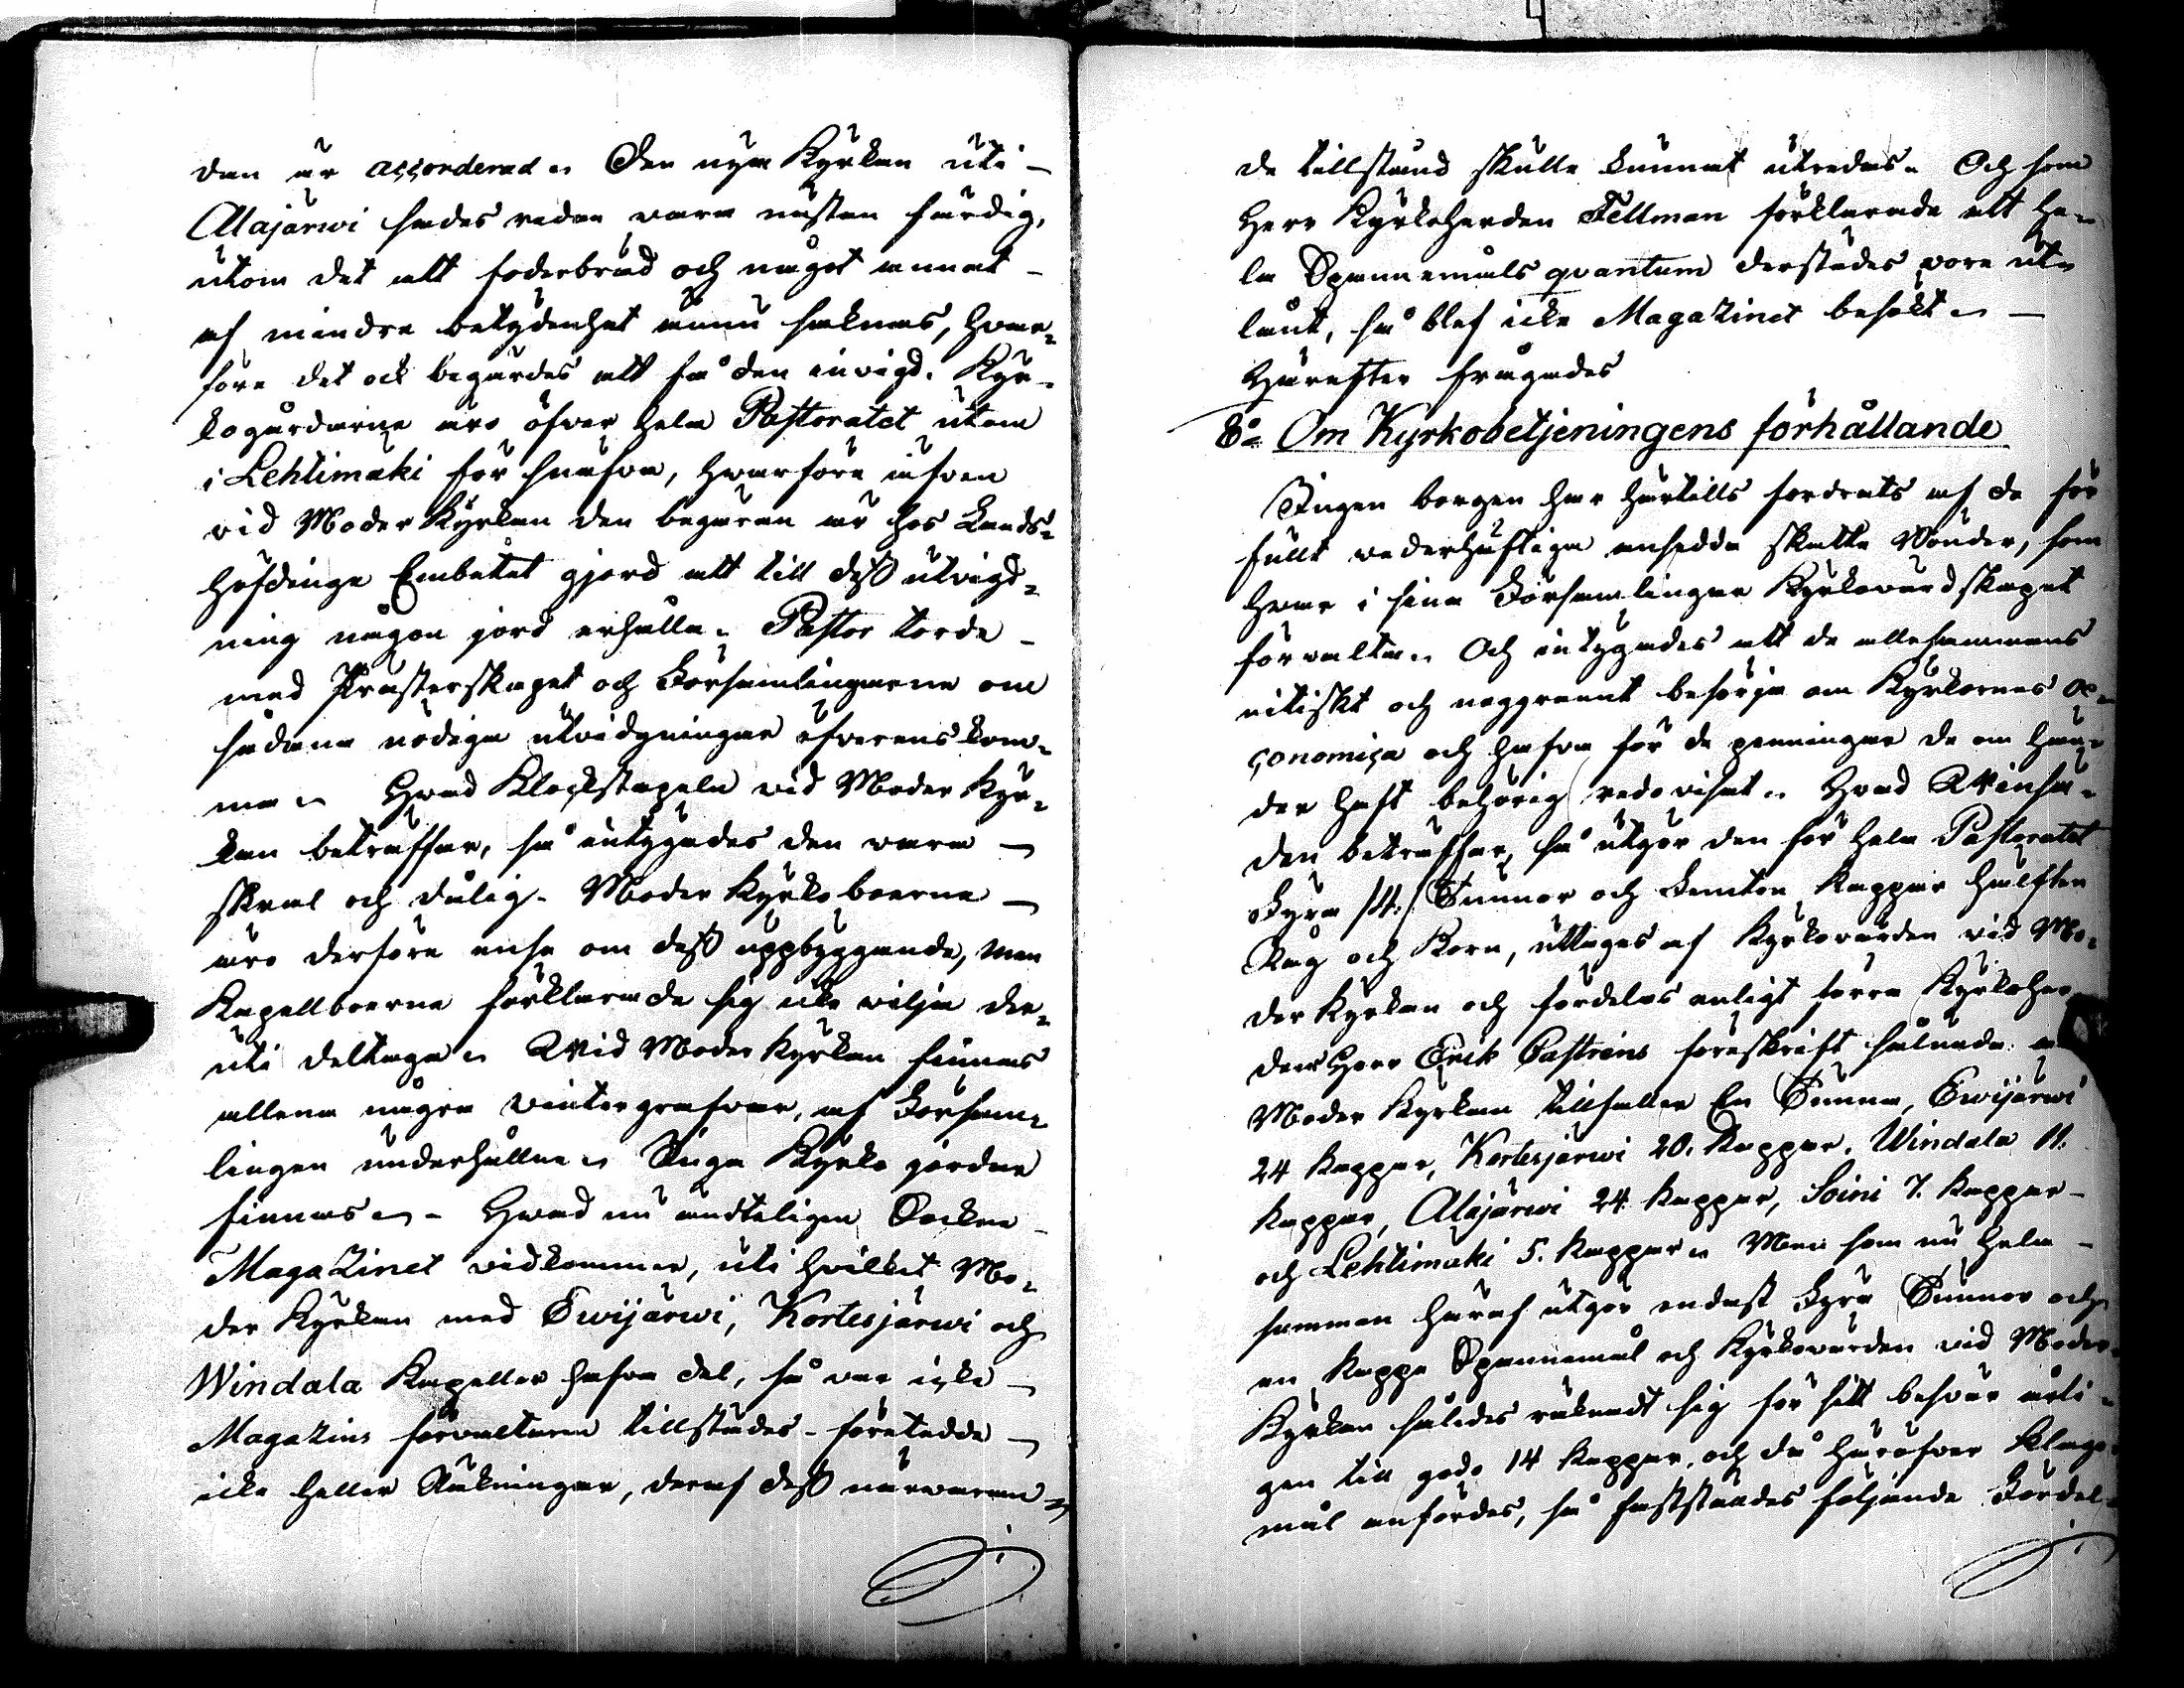 den är accorderad. Den nya Kyrkan uti
Alajärwi sades redan wara nästan färdig,
utom det att foderbräd och något annat
af mindre betydenhet ännu saknas, hwar-
före det ock begärdes att få den invigd. Kyr-
kogårdarne äro öfver hela Pastoratet utom
i Lehtimäki för snäfva, hwarföre äfven
vid Moder Kyrkan den begäran är hos Lands-
höfdinge Embetet gjord att till dess utvidg-
ning någon jord erhålla. Pastor torde
med Prästerskapet och Församlingarne om
sådana nödiga utvidgningar öfverenskom-
ma. Hwad Klockstapeln vid Moder Kyr-
kan beträffar, så intygades den wara
skral och dålig. Moder Kyrkoboerne
äro derföre ense om dess uppbyggande, men
Kapellboerne förklarade sig icke vilja der-
uti deltaga. Wid Moder Kyrkan finnas
allena några vintergrafvar, af Försam-
lingen underhållne. Inga Kyrko jordar
finnas. Hwad nu ändteligen Socken
Magazinet vidkommer, uti hvilket Mo-
der Kyrkan med Ewijärwi, Kortesjärwi och
Windala Kapeller hafva del, så var icke
Magazins förvaltaren tillstädes, företedde
icke heller Räkningar, deraf dess närwaran-
de tillstånd skulle kunnat utredas. Och som
Herr Kyrkoherden Fellman förklarade att he-
la Spannemåls qvantum derstädes wore ut-
lånt, så blef icke Magazinet besökt.
Härefter frågades
8o Om Kyrkobetjeningens förhållande
Ingen borgen har härtills fordrats af de för
fullt vederhäftiga ansedde skatte Bönder, som
hwar i sina Församlingar Kyrkovärdskapet
förvalta. Och intygades att de allesammans
nitiskt och noggrannt besörja om Kyrkornas oe-
conomica och hafva för de penningar de om hän-
der haft behörig redovisat. Hwad Winsä-
den beträffar, så utgör den för hela Pastoratet
Fyra /4:/ Tunnor och Femton Kappar hälften
Råg och Korn, uttages af Kyrkovärden vid Mo-
der Kyrkan och fördelas enligt förra Kyrkoher-
den Herr Erik Castréns föreskrift sålunda: att
Moder Kyrkan tillfaller En Tunna, Ewijärwi
24 Kappar, Kortesjärwi 20. Kappar, Windala 11.
Kappar, Alajärwi 24 Kappar, Soini 7. Kappar
och Lehtimäki 5. Kappar. Men som nu hela
summan häraf utgör endast Fyra Tunnor och
en Kappe Spannemål och Kyrkovärden vid Moder
Kyrkan således räknadt sig för sitt besvär årli-
gen till godo 14 Kappar, och då häröfver klago-
mål anfördes, så fastställdes följande Fördel-